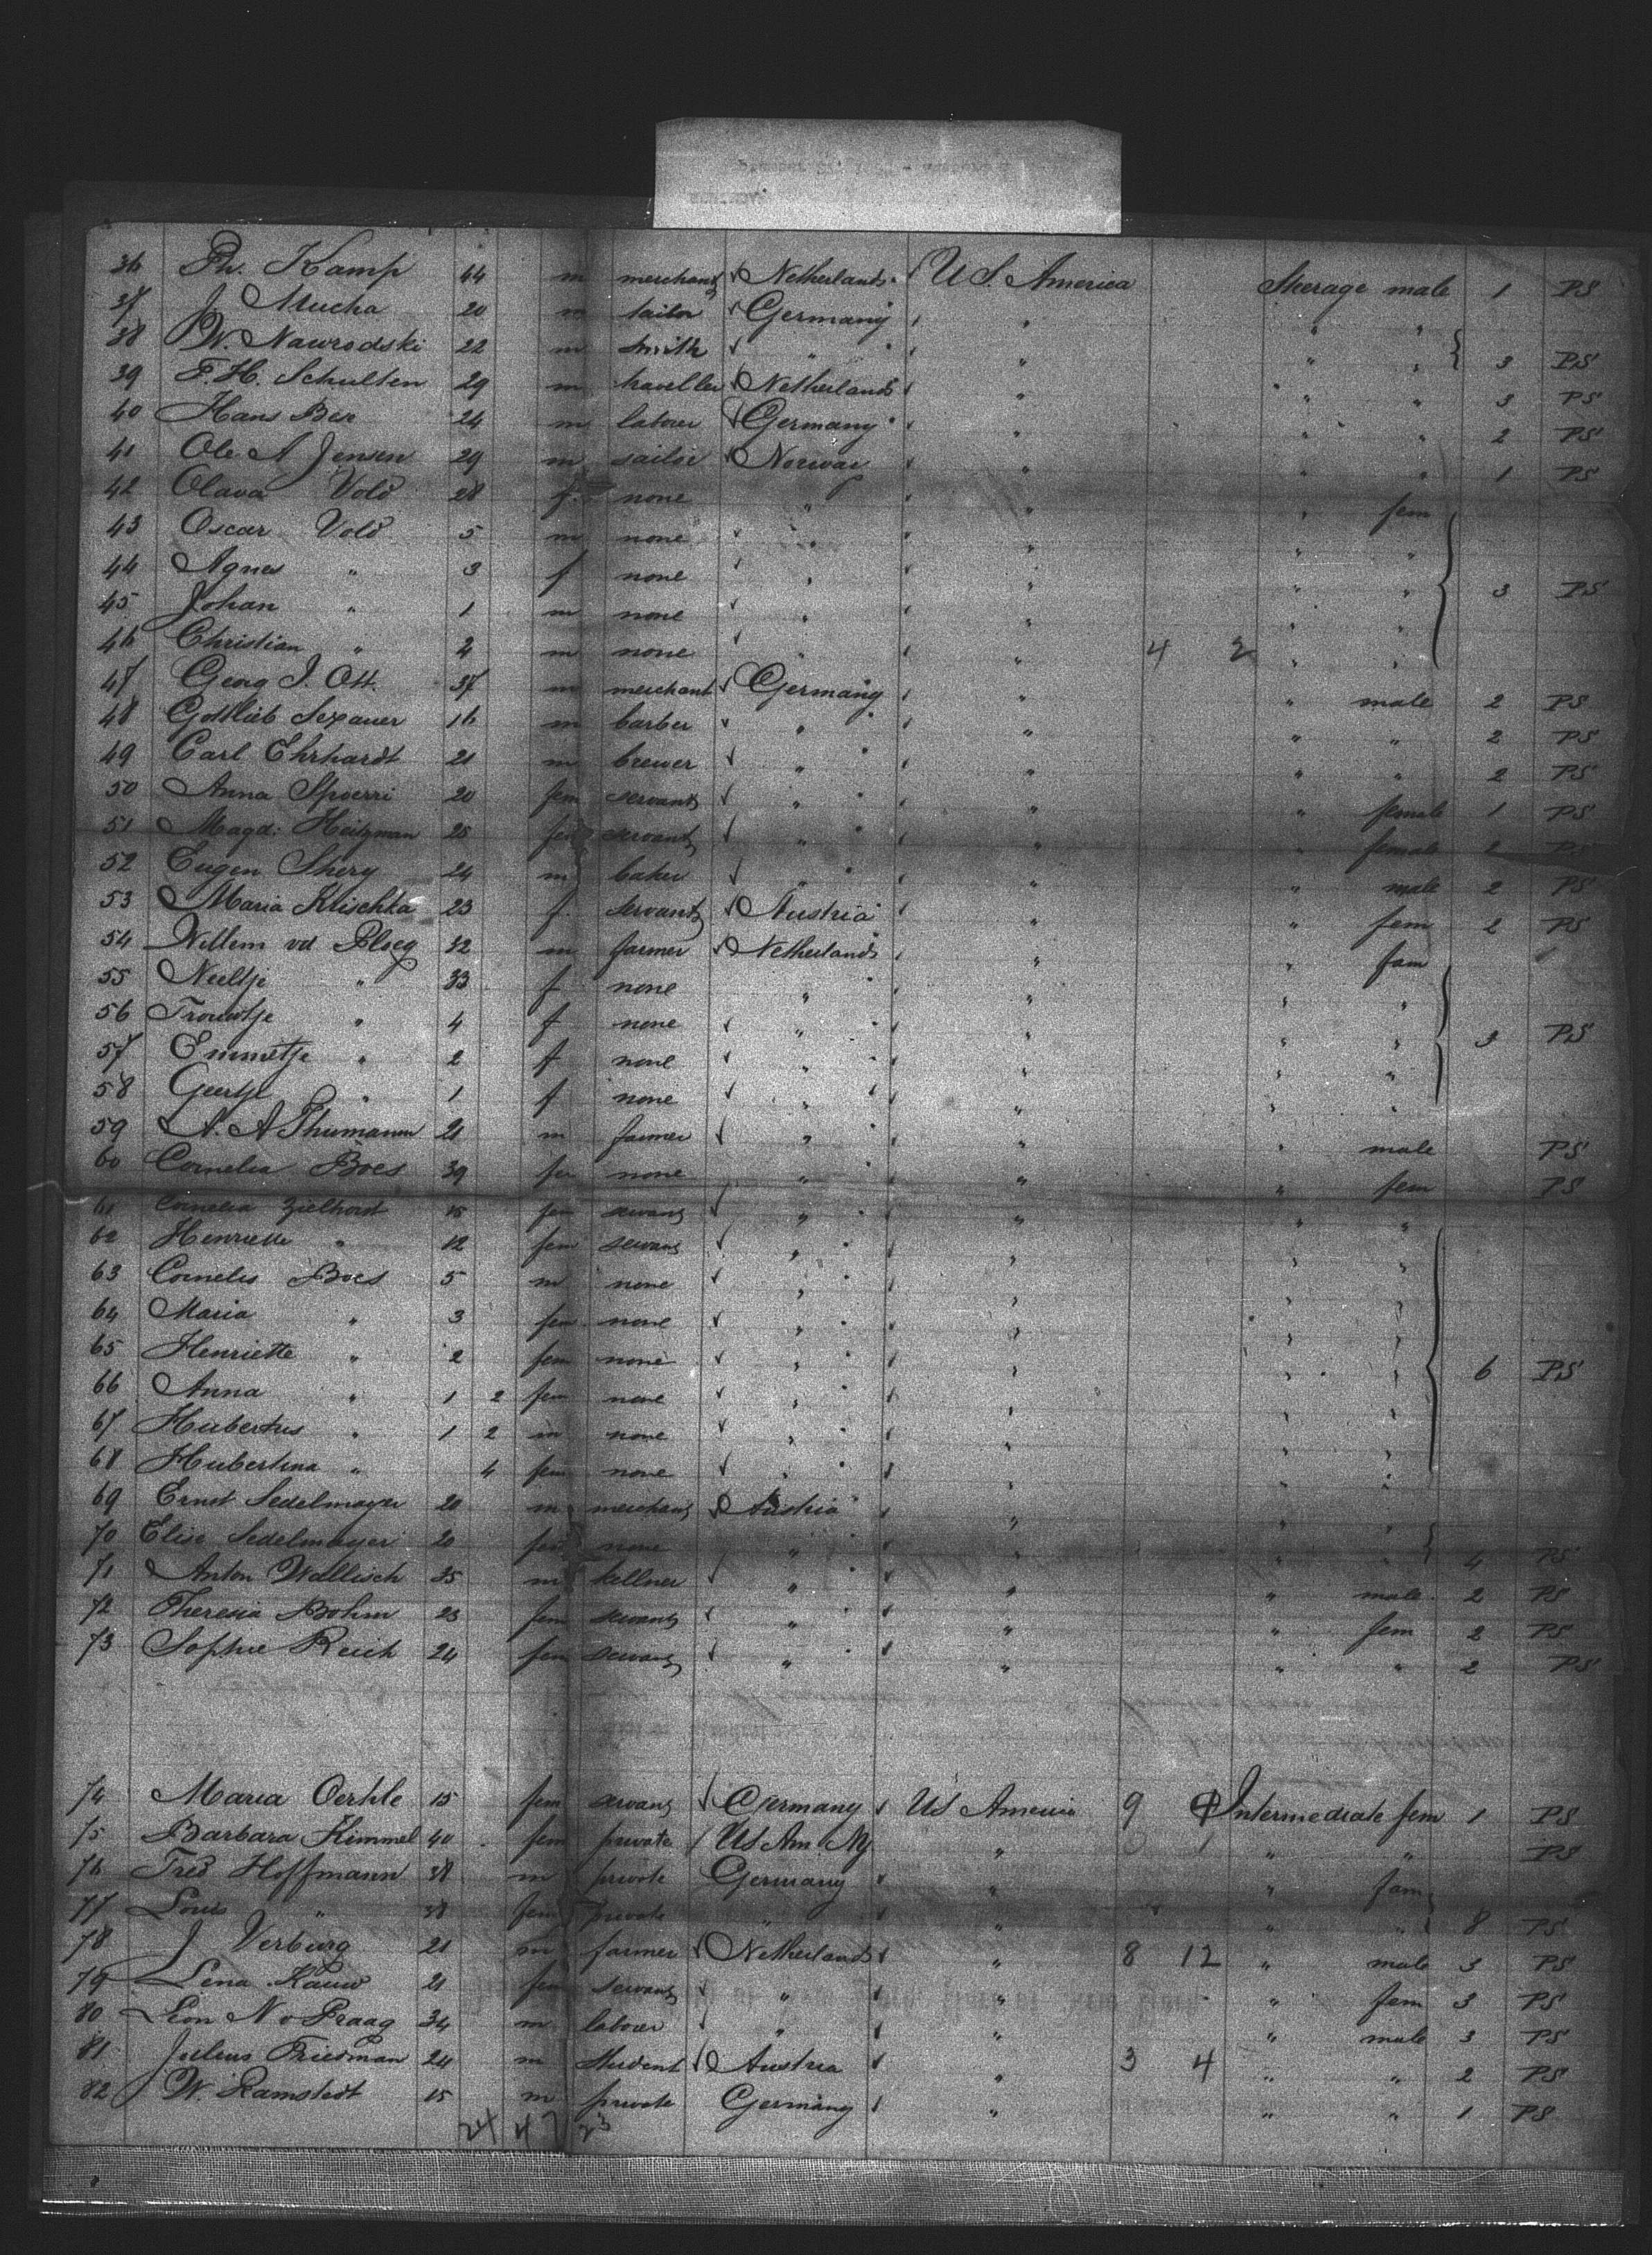 36 Ph. Kamp 44 m merchant Netherlands U S. America Steerage male 1 PS
37 J Mucha 20 m tailor Germany " " "
38 W. Nawrodski 22 m smith " " " " 3 PS
39 F. H. Schulten 29 m traveller Netherlands " " " 3 PS
40 Hans Ber 24 m laborer Germany " " " 2 PS
41 Ole A Jensen 29 m sailor Norway " " " 1 PS
42 Olava Vold 28 f. none " " " fem
43 Oscar Vold 5 m none " " " "
44 Agnes " 3 f none " " " " 3 PS
45 Johan " 1 m none " " " "
46 Christian " 2 m none " " 4 2 " "
47 Georg J. Ott. 37 m merchant Germany " " male 2 PS
48 Gottlieb Sexauer 16 m barber " " " " 2 PS
49 Carl Ehrhardt 21 m brewer " " " " 2 PS
50 Anna Spoerri 20 fem servant " " " female 1 PS
51 Magd: Heitzman 25 fem servant " " " female 2 PS
52 Eugen Shery 24 m baker " " " male 2 PS
53 Maria Klischka 23 f. servant Austria " " fem 2 PS
54 Willem vd Ploeg 32 m farmer Netherlands " " fam
55 Neeltje " 33 f none " " " "
56 Trouwtje " 4 f none " " " " 3 PS
57 Emmetje " 2 f none " " " "
58 Geertje " 1 f none " " " "
59 A. A Thumann 21 m farmer " " " male PS
60 Cornelia Boes 39 fem none " " " fem PS
61 Cornelia Zielhorst 15 fem servant " " " "
62 Henriette " 12 fem servant " " " "
63 Cornelis Boes 5 m none " " " "
64 Maria " 3 fem none " " " "
65 Henriette " 2 fem none " " " " 6 PS
66 Anna " 1 2 fem none " " " "
67 Hubertus " 1 2 m none " " " "
68 Hubertina " 4 fem none " " " "
69 Ernst Sedelmayer 20 m merchant Austria " " "
70 Elise Sedelmayer 20 fem none " " " " 4 PS
71 Anton Wallisch 25 m kellner " " " male 2 PS
72 Theresia Bohm 23 fem servant " " " fem 2 PS
73 Sophie Reich 24 fem servant " " " " 2 PS
74 Maria Oerhle 15 fem servant Germany US America 9 Intermediate fem 1 PS
75 Barbara Kimmel 40 fem private US Am. NY " " " PS
76 Fred Hoffmann 38 m private Germany " " fam
77 Louis " 38 fem private " " " " 8 PS
78 J Verburg 21 m farmer Netherlands " 8 12 " male 3 PS
79 Lena Kauw 21 fem servant " " " fem 3 PS
80 Leon N v Praag 34 m laborer " " " male 3 PS
81 Julius Friedman 24 m student Austria " 3 4 " " 2 PS
82 W. Ramstedt 15 m private Germany " " " 1 PS
24 47 23